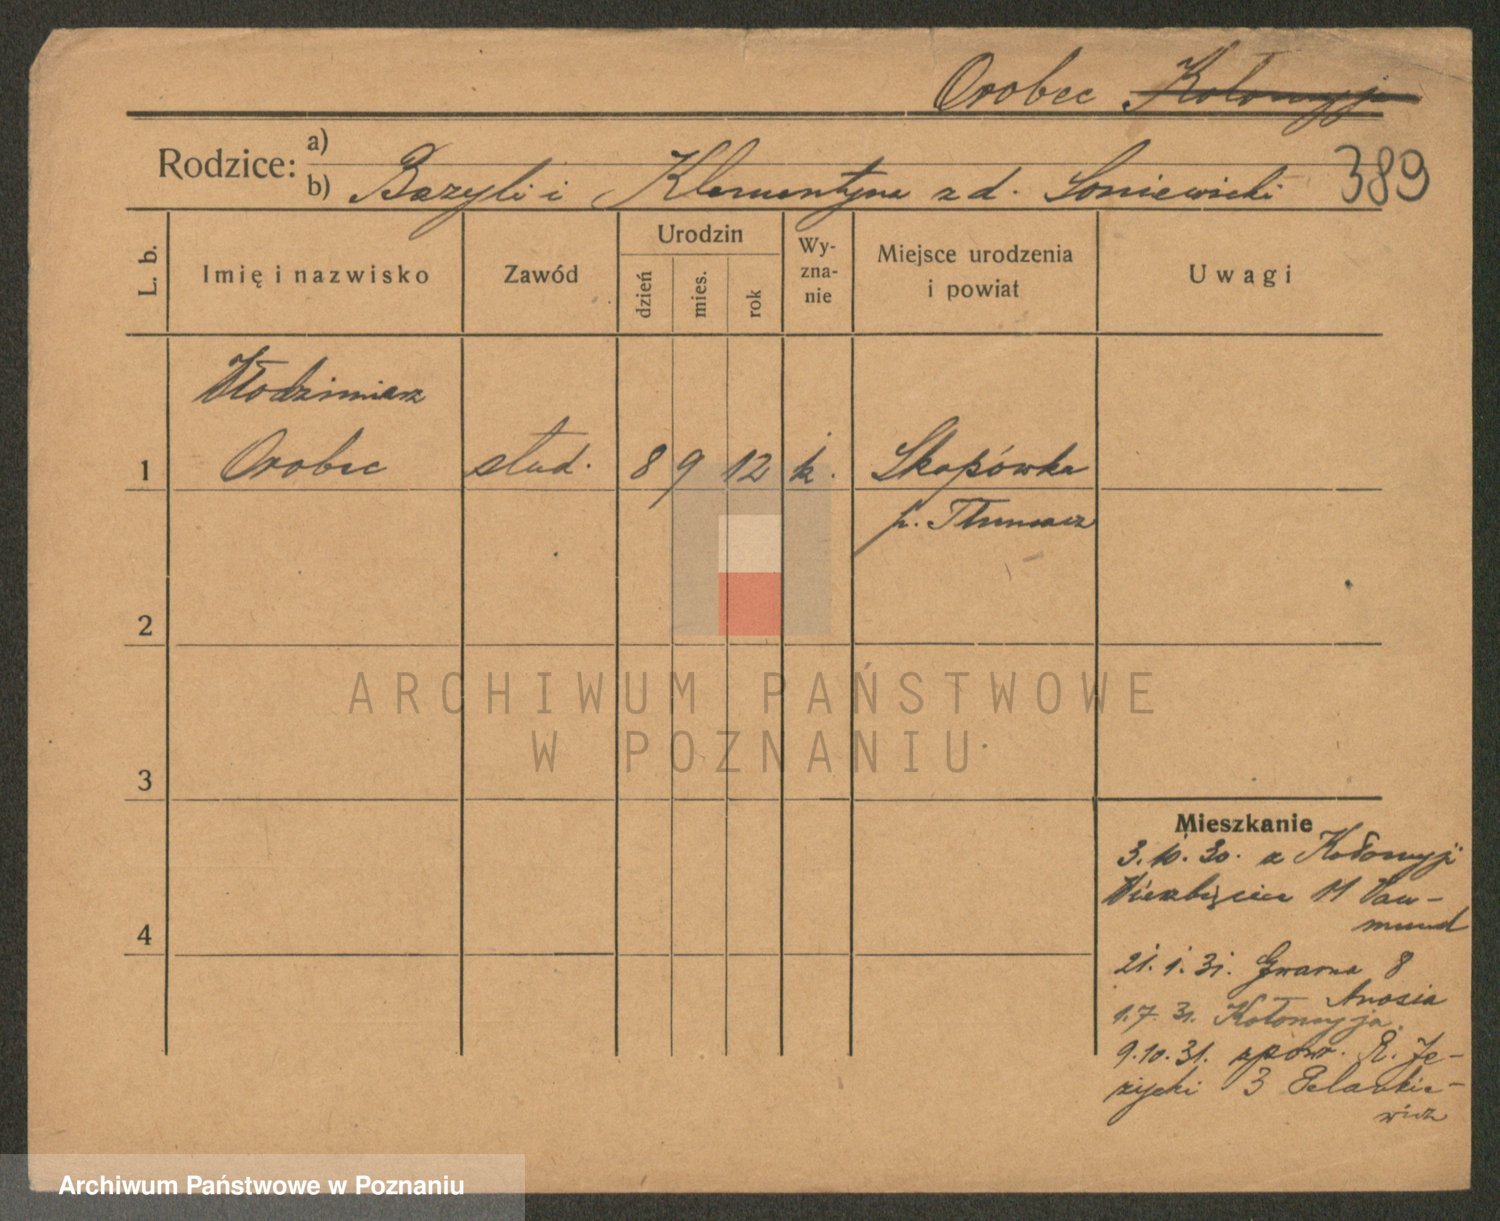 Orobec Kołomyja
Rodzice:
a)
b) Bazyli i Klementyna z d. Soniewicki
389
L. b.
Imię i nazwisko
Zawód
Urodzin
dzień
mies.
rok
Wy-
zna-
nie
Miejsce urodzenia
i powiat
Uwagi
Włodzimierz
1 Orobec stud. 8 9 12 k. Skopówka
p. Tłumacz
2
3
4
ARCHIWUM PAŃSTWOWE
W POZNANIU
Mieszkanie
3.10.30. z Kołomyji
11
21.1.31. Gwarna 8
1.7.31. Kołomyja
9.10.31. spow. R. Je-
życki 3
wicz
Archiwum Państwowe w Poznaniu